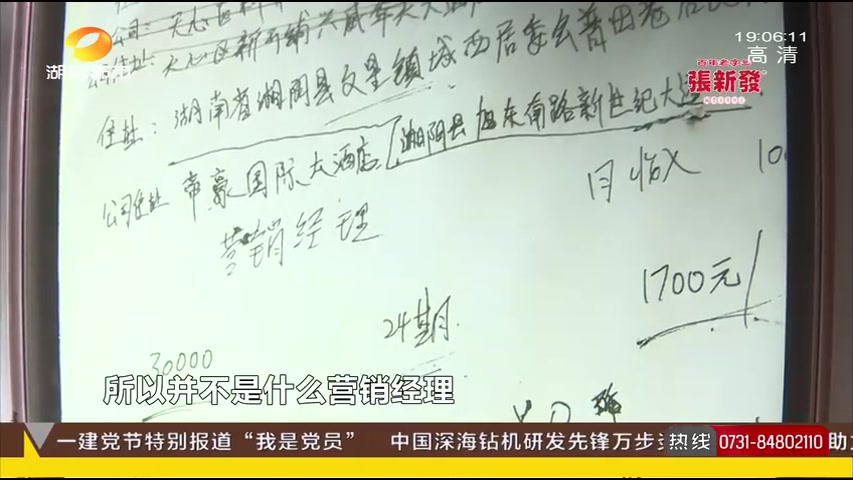 公司: 天心区新
19:06:11
高清
百年老字号
張新發
住址: 天心区新
城西居委会普田巷居
住址: 湖南省湘阴县文星镇
公司住址 帝豪国际大酒店 湘阴县旭东南路新世纪大
月收入 10
营销经理
1700元/
24期.
30000
所以并不是什么营销经理
一建党节特别报道“我是党员” 中国深海钻机研发先锋万步
热线 0731-84802110 助